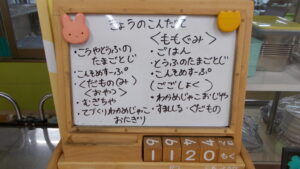 きょうのこんだて
・こうやどうふの
たまごとじ
・こんそめすーぷ
・くだもの(み)
〈おやつ〉
・むぎちゃ
・てづくりわかめじゃこ
おにぎり
〈ももぐみ〉
・ごはん
とうふのたまごとじ
・こんそめすーぷ
(ごごしょく)
・わかめじゃこおじや
・すましじる・くだもの
11 20 もく